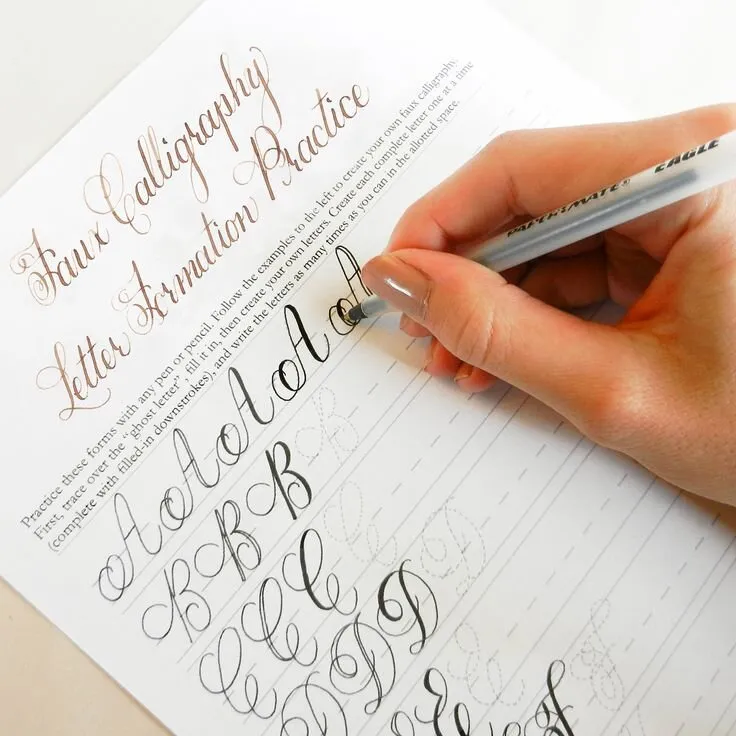 Faux Calligraphy
Letter Formation Practice
Practice these forms with any pen or pencil. Follow the examples to the left to create your own faux calligraphy.
First, trace over the "ghost letter", fill it in, then create your own letters. Create each complete letter one at a time
(complete with filled-in downstrokes), and write the letters as many times as you can in the allotted space.
A A A A A
B B B B
C C C C
D D D D
E E
F F
PAPERMATE® EAGLE